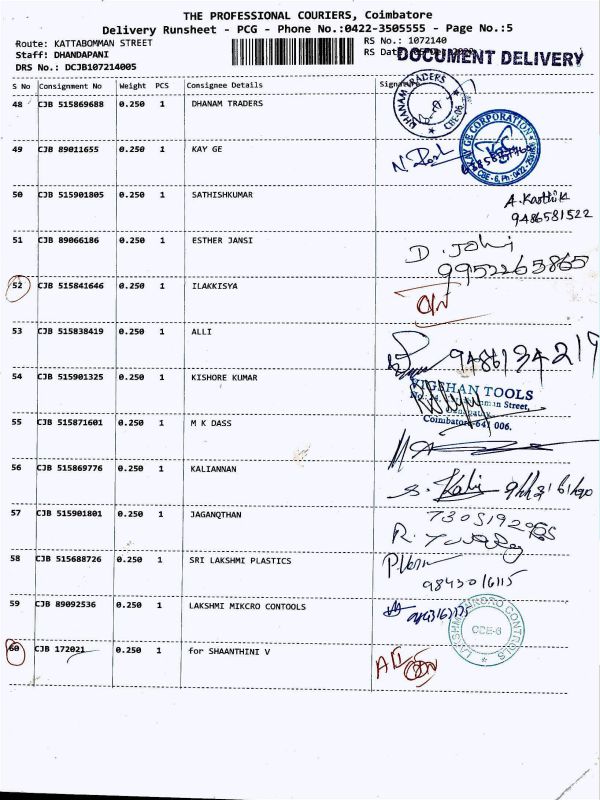 THE PROFESSIONAL COURIERS, Coimbatore
Delivery Runsheet - PCG - Phone No.:0422-3505555 - Page No.:5
Route: KATTABOMMAN STREET
Staff: DHANDAPANI
DRS No.: DCJB107214005
RS No.: 1072140
RS Date:
DOCUMENT DELIVERY
S No Consignment No Weight PCS Consignee Details Signature
48 CJB 515869688 0.250 1 DHANAM TRADERS
DHANAM TRADERS CBE-06.
49 CJB 89011655 0.250 1 KAY GE
KAY GE CORPORATION
50 CJB 515901805 0.250 1 SATHISHKUMAR
A. Karthik
9486581522
51 CJB 89066186 0.250 1 ESTHER JANSI
9952265865
52 CJB 515841646 0.250 1 ILAKKISYA
53 CJB 515838419 0.250 1 ALLI
9486134219
54 CJB 515901325 0.250 1 KISHORE KUMAR
VIGSHAN TOOLS
Street,
Coimbatore-641 006.
55 CJB 515871601 0.250 1 M K DASS
56 CJB 515869776 0.250 1 KALIANNAN
57 CJB 515901801 0.250 1 JAGANQTHAN
58 CJB 515688726 0.250 1 SRI LAKSHMI PLASTICS
9843016115
59 CJB 89092536 0.250 1 LAKSHMI MIKCRO CONTOOLS
60 CJB 172021 0.250 1 for SHAANTHINI V